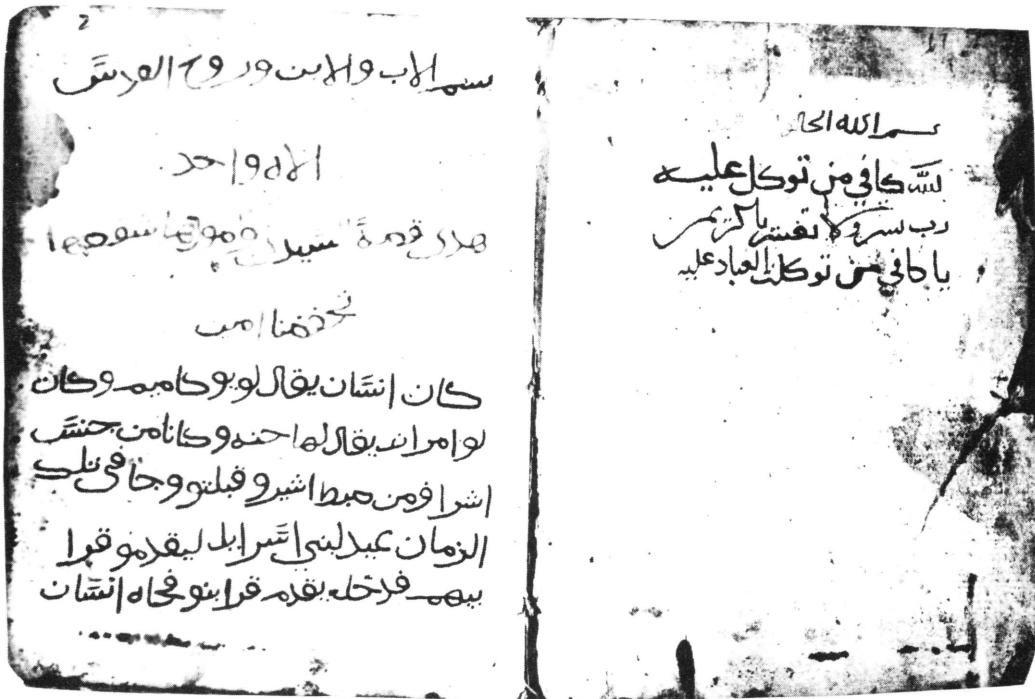 بسم الله الخالق
لله كافي من توكل عليه
رب يسر ولا تعسر يا كريم
يا كافي من توكلت العباد عليه
2
بسم الاب والابن وروح القدس
الاه واحد
هدى قصة ستيدة
امين
كان انسان يقال لو يوكاميم وكان
لو امراته يقال لها حنه وكانا من جنس
اشراف ومن صبط اشير وقبلتو وجا في تلك
الزمان عيد لبني اسرايل ليقدمو قرا
بيهم فدخل يقدم قرابنو فجاه انسان